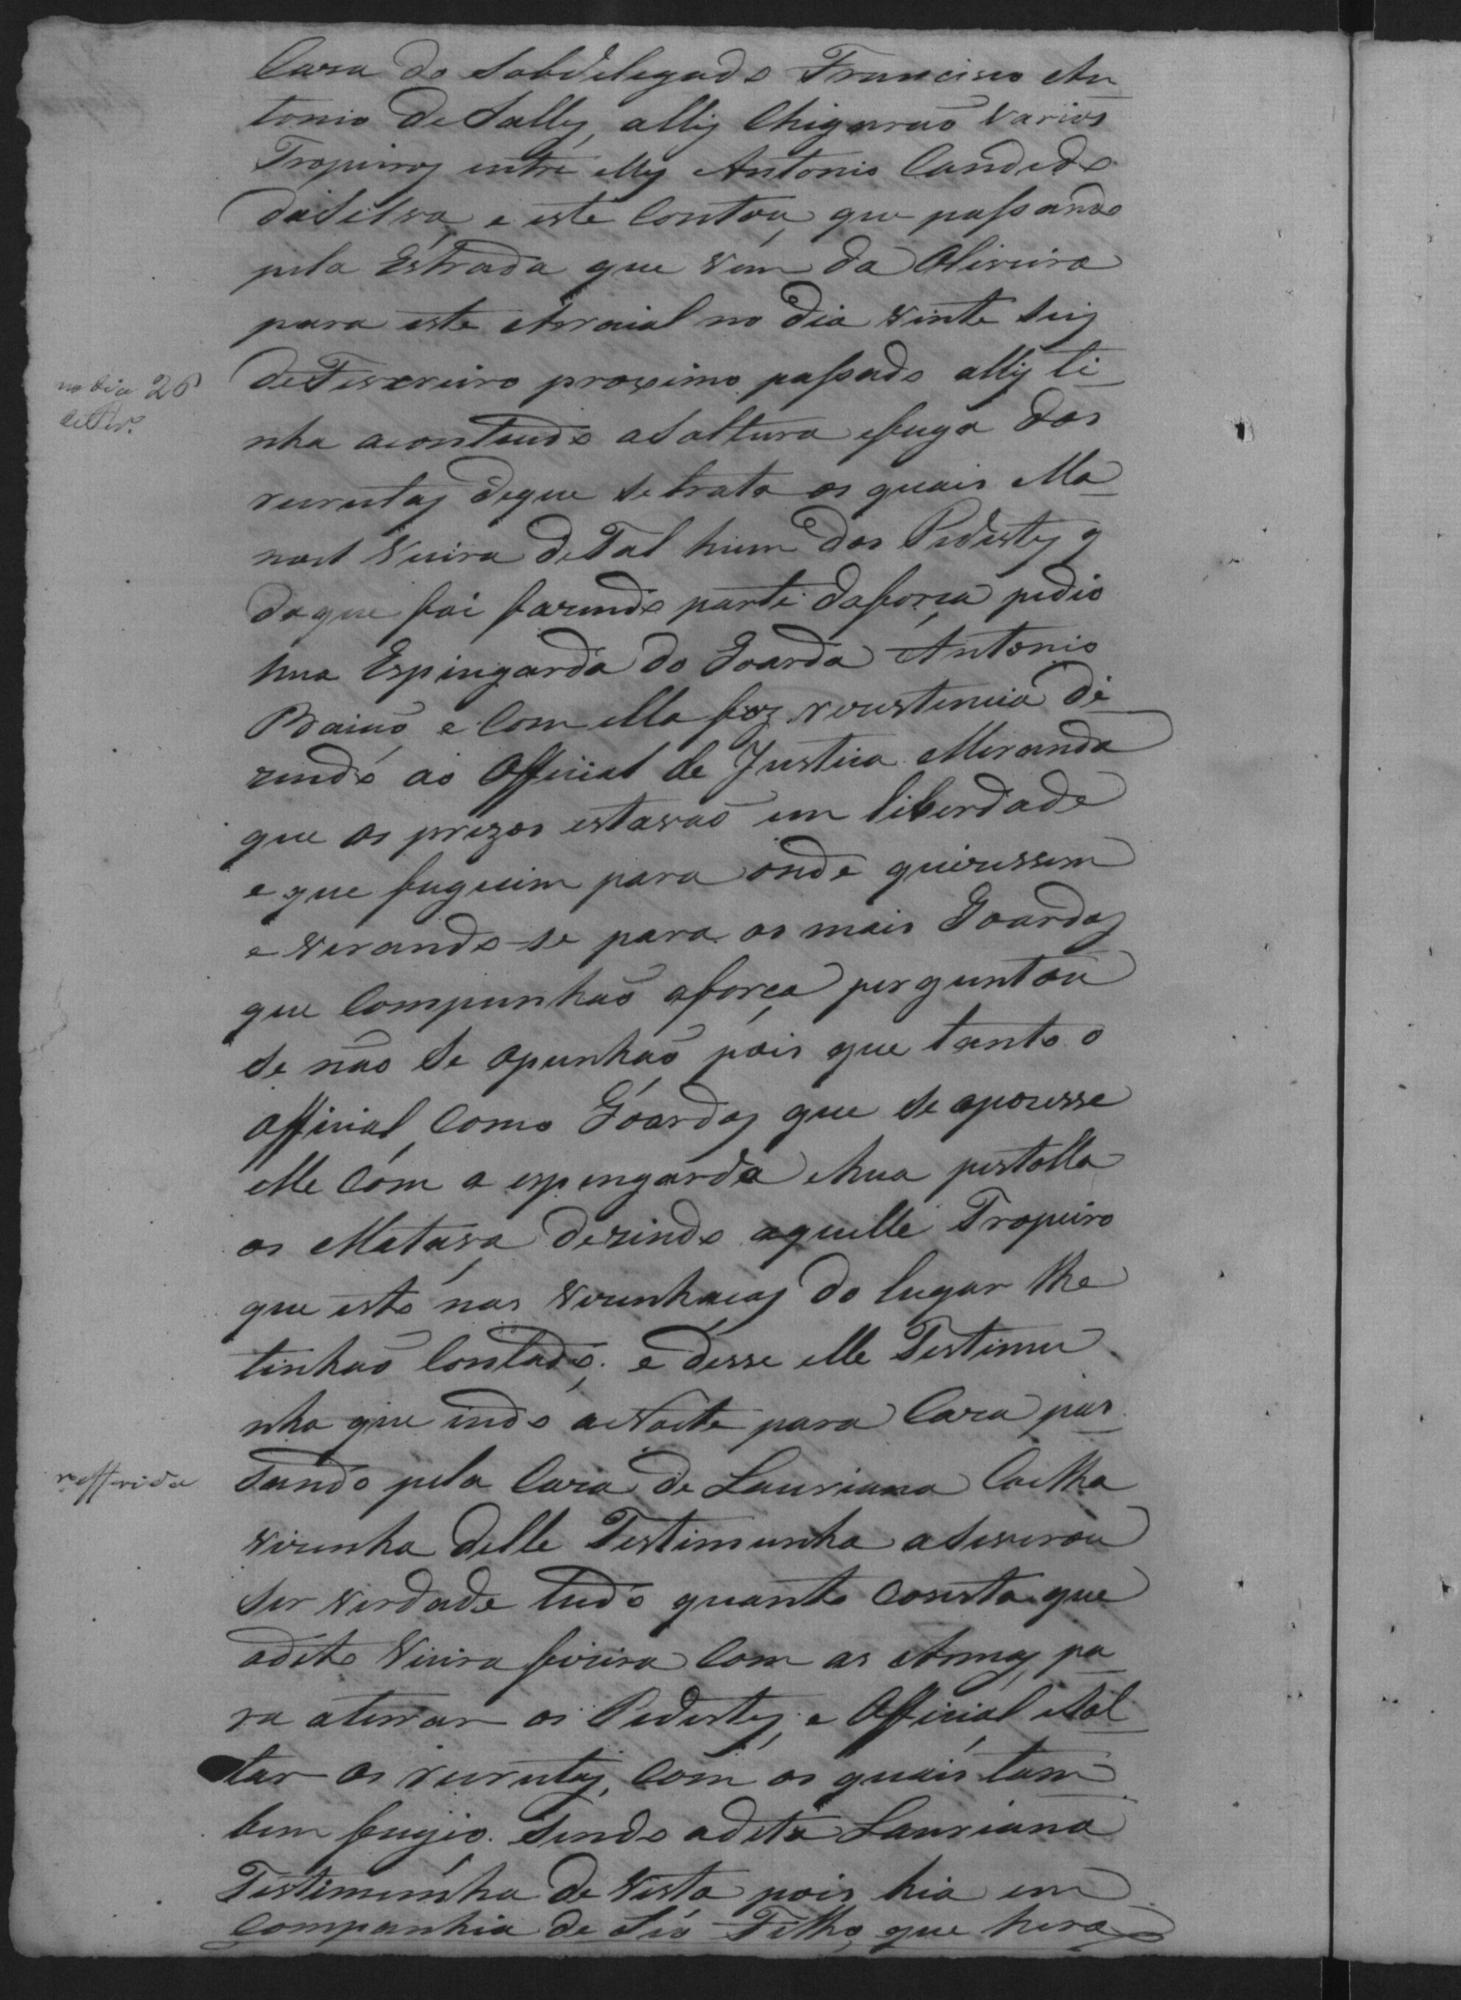 Caza do Sobdelegado Francisco An
tonio de Salles, alli Chigarão varios
Tropeiros entre elles Antonio Candido
da Silva, e este Contou, que passando
pela Estrada que vem da Oliveira
para este Arraial no dia vinte Seis
de Fevereiro proximo passado alli ti
no dia 26
de Fevr.º
nha acontecido a Soltura efuga dos
recrutas deque se trata os quais Ma
noel Vieira de Tal hum dos Pedestes q
daque foi fazendo parte da força pedio
hua Espingarda do Goarda Antonio
Baião e Com ella fez rezistencia di
zendo ao Official de Justiça Miranda
que os prezos estavão em liberdade
e que fugicim para onde quizessem
e virando-se para os mais Goardas
que Compunhão aforça perguntou
se não se opunhão pois que tanto o
Official, Como Goardas que se opozesse
elle Com a espingarda ehua pistolla
os Matava dezindo aquelle Tropeiro
que isto nas vezinhaças do lugar lhe
tinhão Contado; e disse elle Testimu
nha que indo a Noite para Caza pas
sando pela Caza de Lauriana Coelha
refferida
vizinha delle Testimunha aSeverou
Ser verdade tudo quanto Consta que
odito Vieira fizera Com as Armas, pa
ra aterrar os Pedestes, e Official eSol
tar os recrutas, Com os quais tam
bem fugio. Sendo adita Lauriana
Testimunha de vista pois hia em
Companhia de Seo Filho, que hera